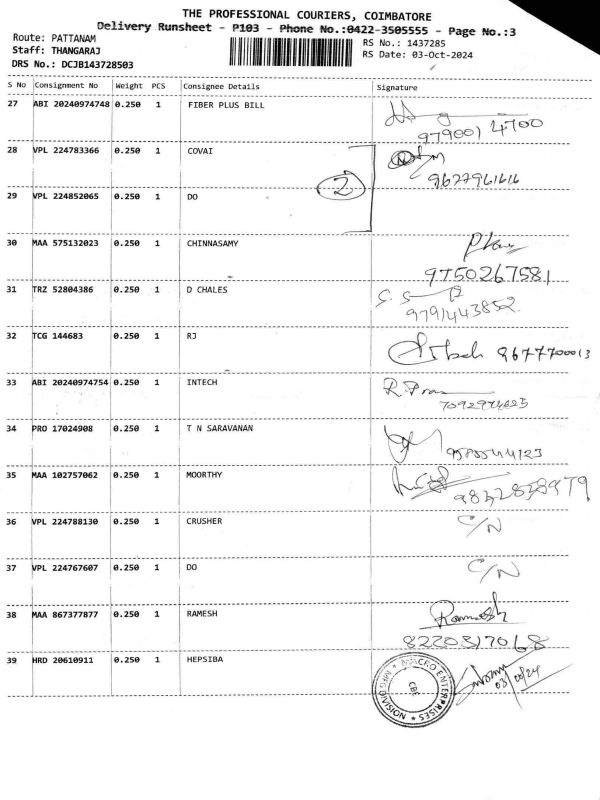 THE PROFESSIONAL COURIERS, COIMBATORE
Delivery Runsheet - P103 - Phone No.:0422-3505555 - Page No.:3
Route: PATTANAM
Staff: THANGARAJ
DRS No.: DCJB143728503
RS No.: 1437285
RS Date: 03-Oct-2024
S No Consignment No Weight PCS Consignee Details Signature
27 ABI 20240974748 0.250 1 FIBER PLUS BILL
979001 4700
28 VPL 224783366 0.250 1 COVAI
2
29 VPL 224852065 0.250 1 DO
30 MAA 575132023 0.250 1 CHINNASAMY
9750267581
31 TRZ 52804386 0.250 1 D CHALES
9791443852
32 TCG 144683 0.250 1 RJ
9677700013
33 ABI 20240974754 0.250 1 INTECH
34 PRO 17024908 0.250 1 T N SARAVANAN
35 MAA 102757062 0.250 1 MOORTHY
36 VPL 224788130 0.250 1 CRUSHER C/N
37 VPL 224767607 0.250 1 DO C/N
38 MAA 867377877 0.250 1 RAMESH Ramesh
8220317068
39 HRD 20610911 0.250 1 HEPSIBA
MACRO ENTERPRISES
CBE
DIVISION